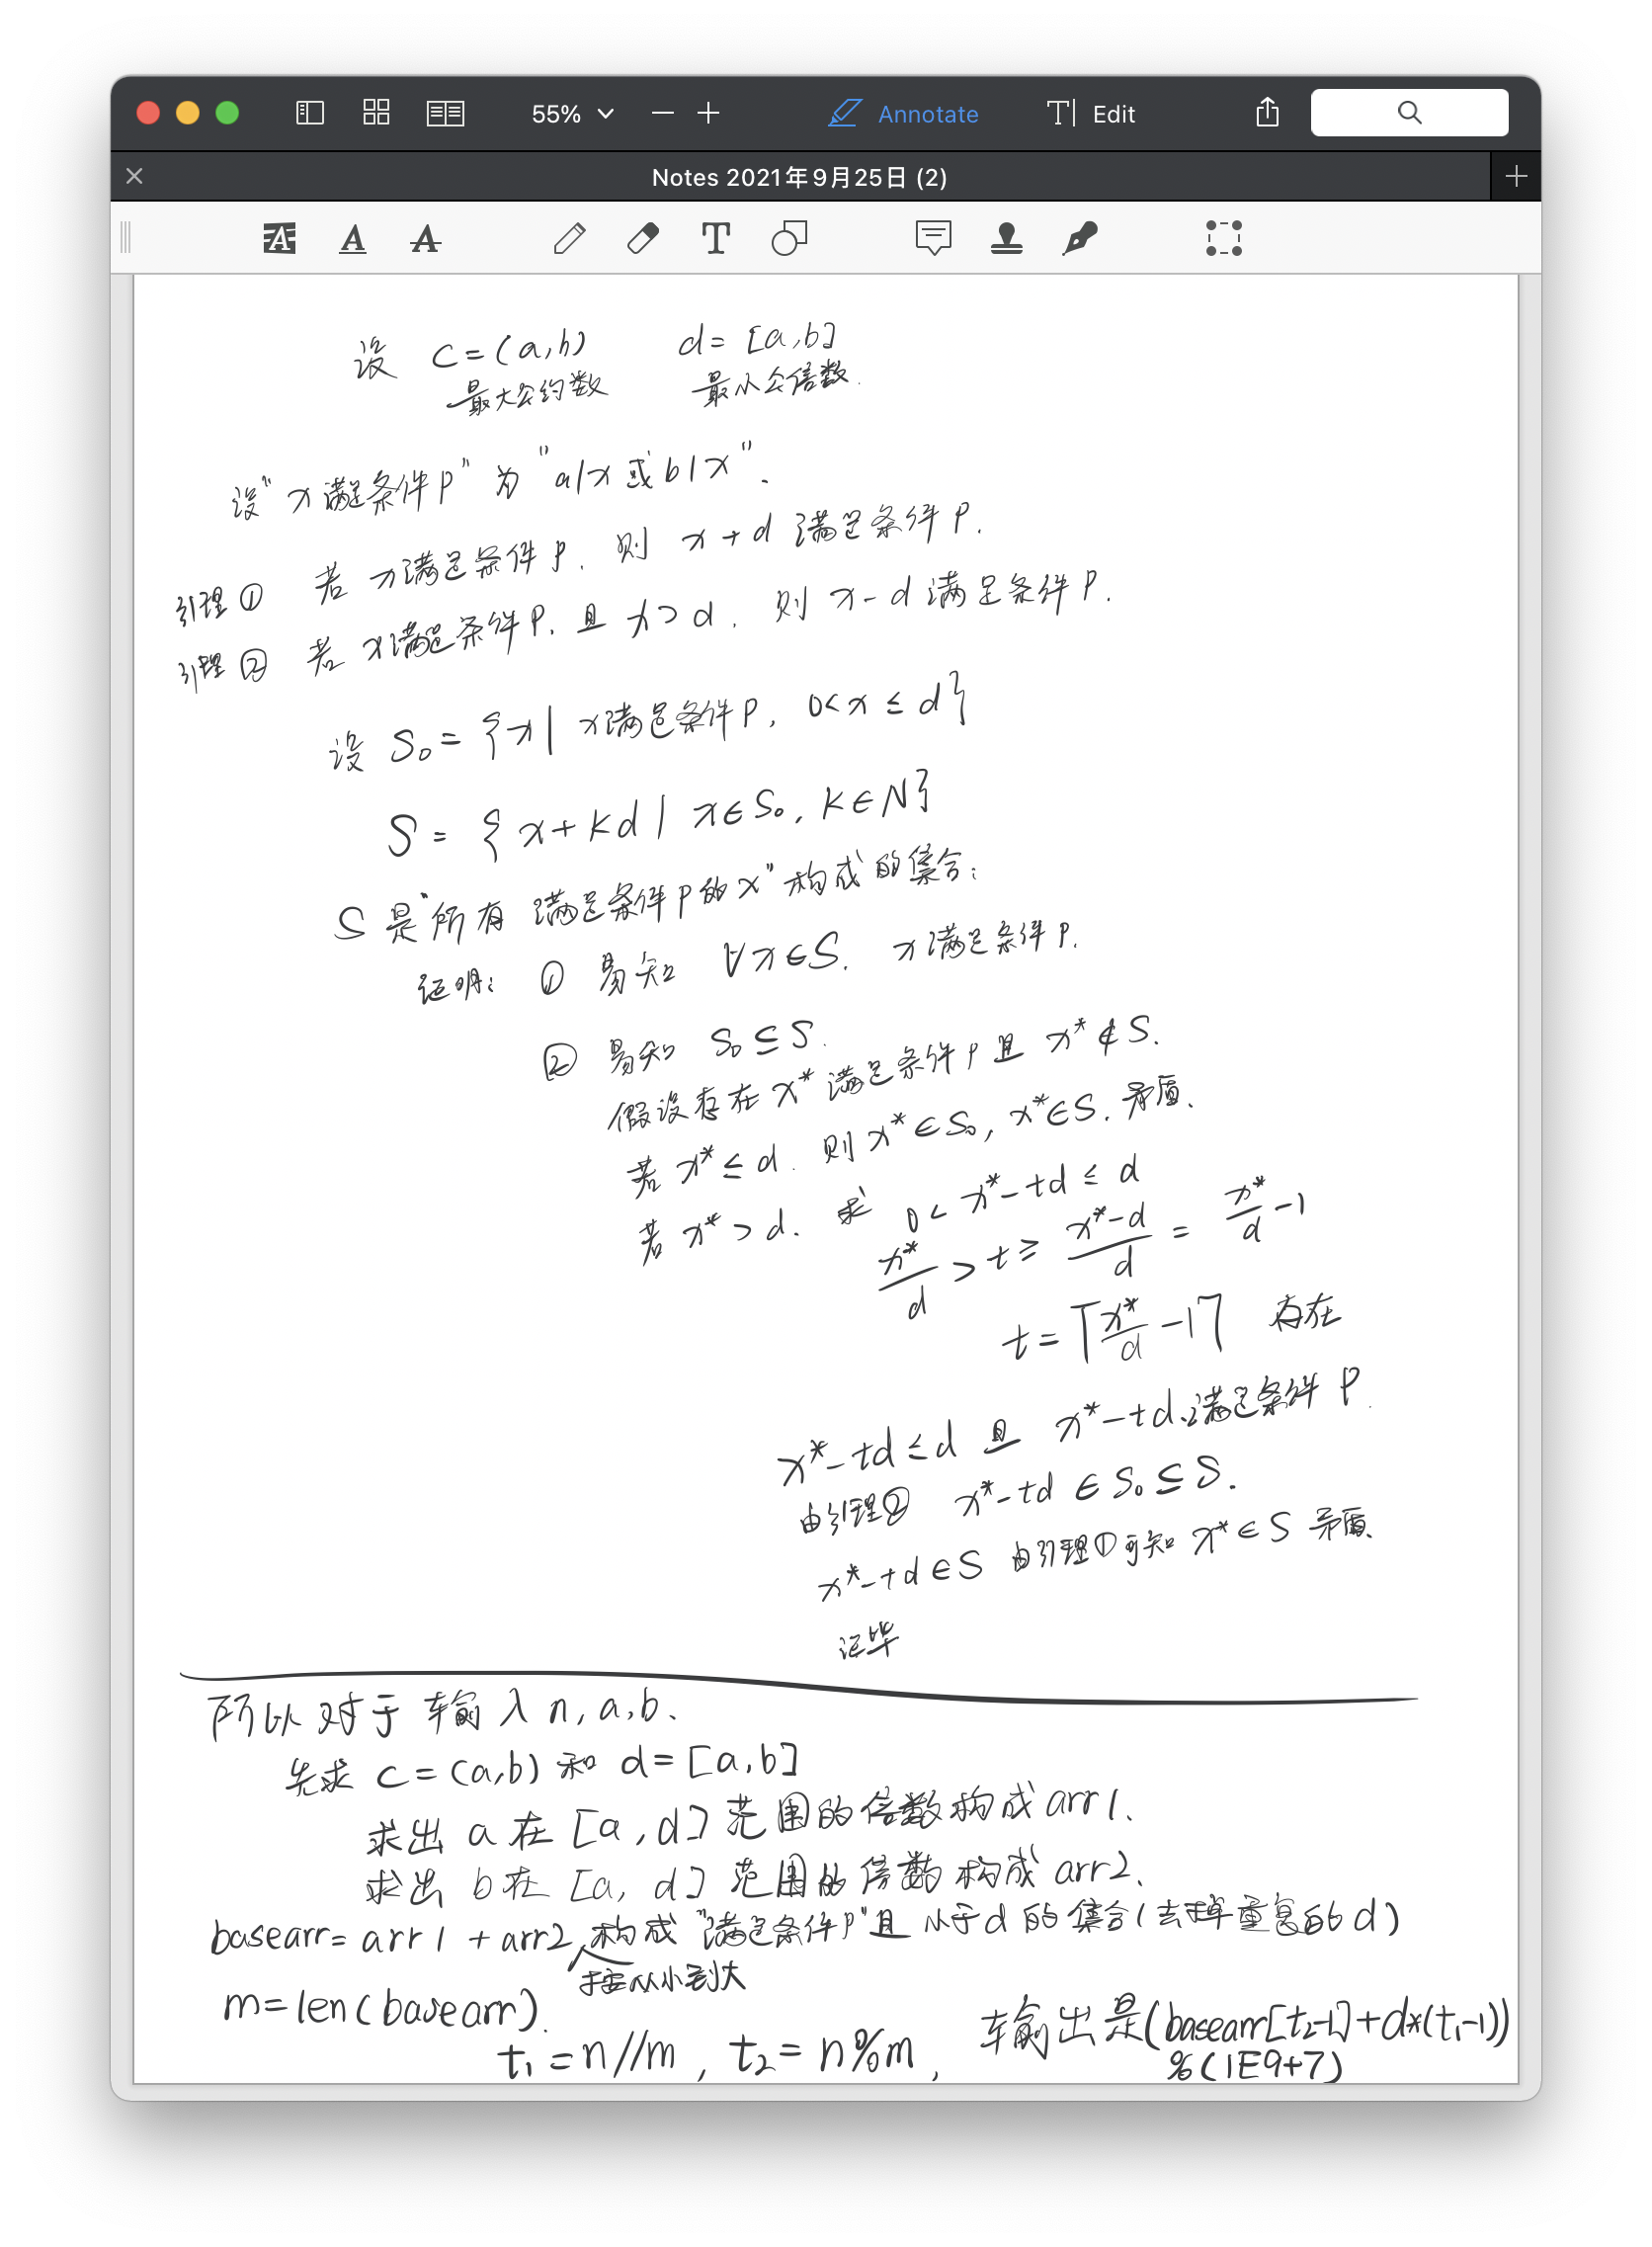 55%
Annotate
Edit
Notes 2021年9月25日 (2)
设 c=(a,b) d=[a,b]
最大公约数 最小公倍数.
设"x满足条件P"为"a|x或b|x".
引理① 若x满足条件P. 则 x+d 满足条件P.
引理② 若x满足条件P. 且 x>d. 则 x-d 满足条件P.
设 S₀={x| x满足条件P, 0<x≤d}
S={x+kd | x∈S₀, k∈N}
S是"所有满足条件P的x"构成的集合:
证明: ① 易知 ∀x∈S. x满足条件P.
② 易知 S₀⊆S.
假设存在x*满足条件P且 x*∉S.
若 x*≤d. 则x*∈S₀, x*∈S. 矛盾.
若 x*>d. 求 0<x*-td≤d
x*/d > t ≥ (x*-d)/d = x*/d -1
t=⌈x*/d -1⌉ 存在
x*-td≤d 且 x*-td满足条件P.
由引理② x*-td∈S₀⊆S.
x*-td∈S 由引理①可知 x*∈S 矛盾.
证毕
所以对于输入 n,a,b.
先求 c=(a,b) 和 d=[a,b]
求出 a 在 [a,d] 范围的倍数构成 arr1.
求出 b 在 [a,d] 范围的倍数构成 arr2.
basearr= arr1 + arr2 构成"满足条件P"且小于d的集合(去掉重复的d)
按从小到大
m=len(basearr).
t₁=n//m, t₂=n%m, 输出是(basearr[t₂-1]+d*(t₁-1))
%(1E9+7)